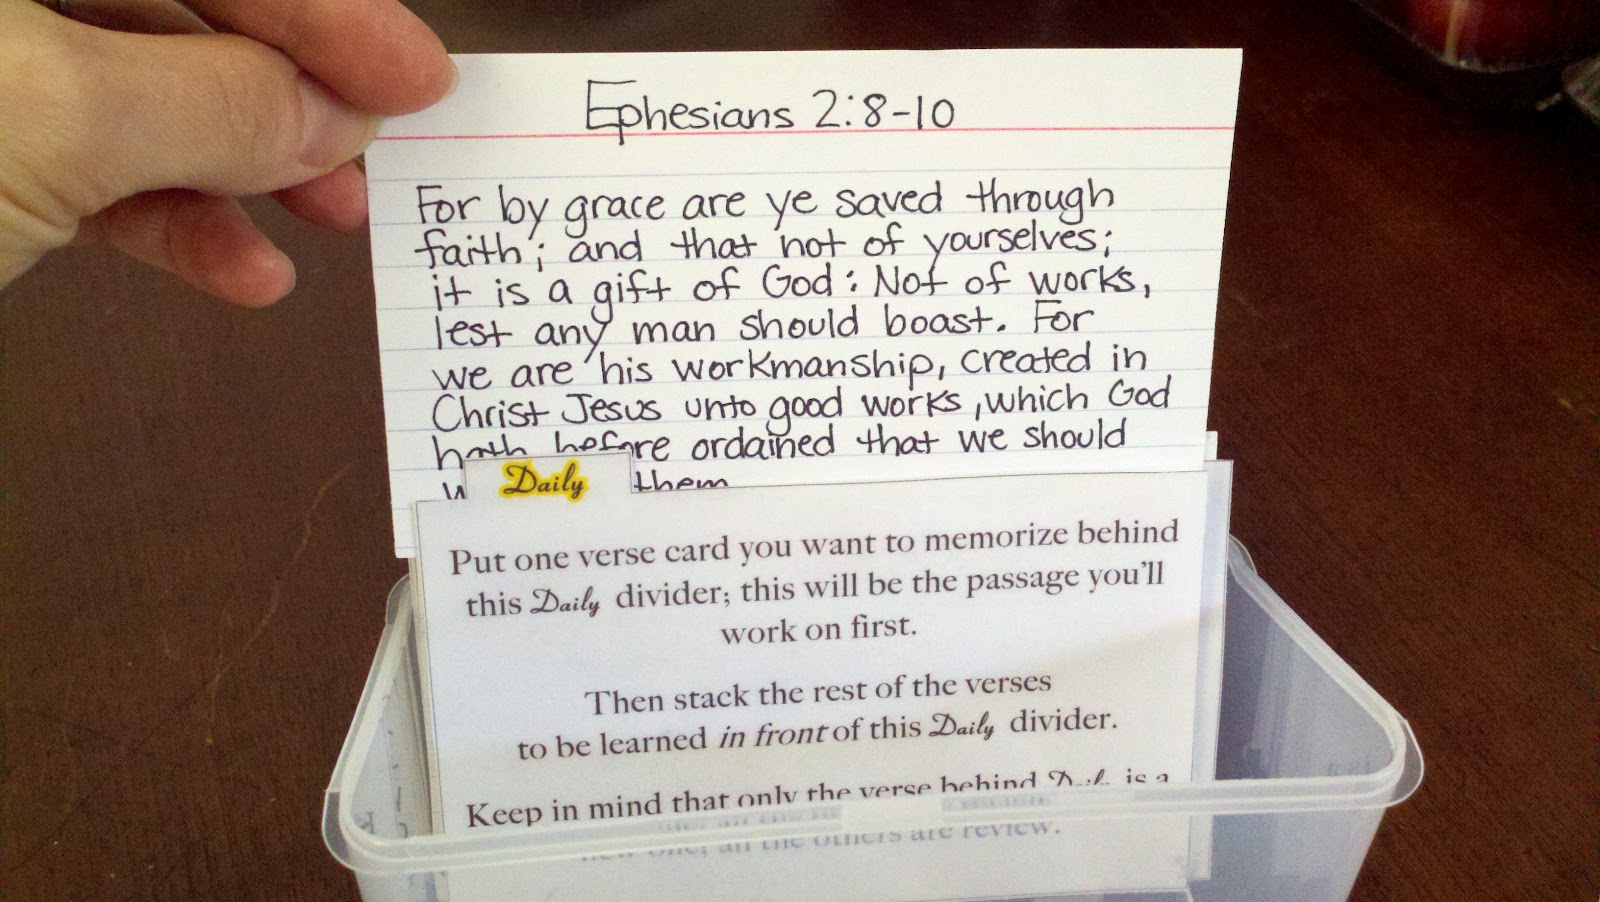 Ephesians 2:8-10
For by grace are ye saved through
faith; and that not of yourselves;
it is a gift of God: Not of works,
lest any man should boast. For
we are his workmanship, created in
Christ Jesus unto good works, which God
hath before ordained that we should
them
Daily
Put one verse card you want to memorize behind
this Daily divider; this will be the passage you'll
work on first.
Then stack the rest of the verses
to be learned in front of this Daily divider.
Keep in mind that only the verse behind Daily is a
new one; all the others are review.